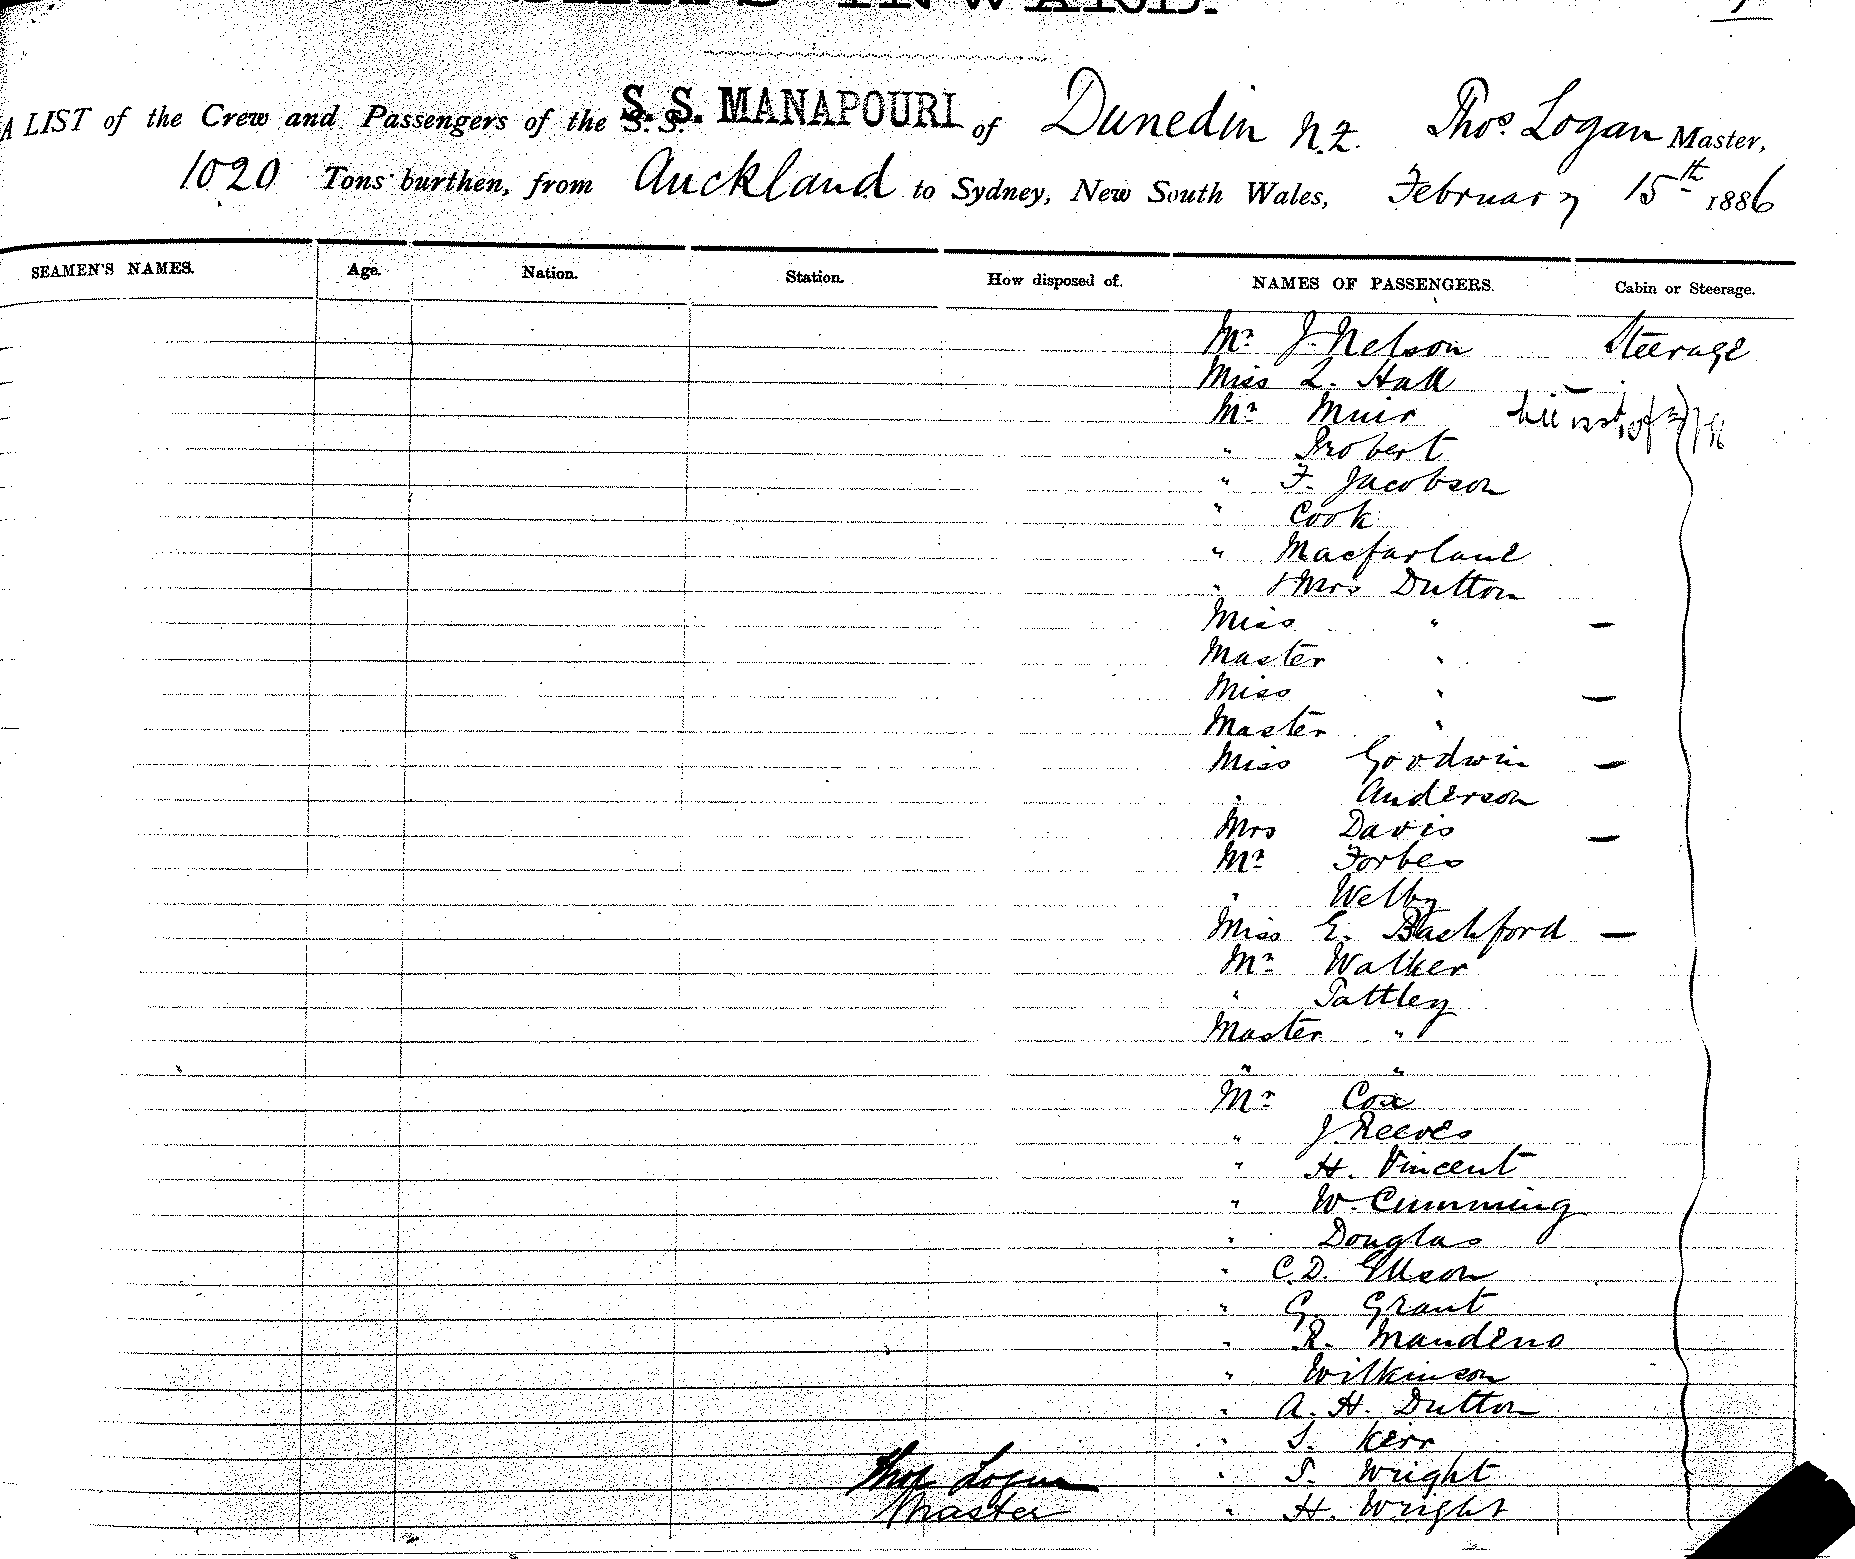 SHIPS INWARD.
A LIST of the Crew and Passengers of the S. S. MANAPOURI of Dunedin N.Z. Thos Logan Master,
1020 Tons burthen, from Auckland to Sydney, New South Wales, February 15th 1886
SEAMEN'S NAMES. Age. Nation. Station. How disposed of. NAMES OF PASSENGERS. Cabin or Steerage.
Mr J. Nelson Steerage
Miss L. Hall -
Mr Muir
" Probert
" F. Jacobson
" Cook
" Macfarlane
" & Mrs Dutton
Miss " -
Master "
Miss " -
Master "
Miss Goodwin -
" Anderson
Mrs Davis -
Mr Forbes
" Welby
Miss E. Bashford -
Mr Walker
" Pattley
Master "
" "
Mr Cox
" J. Reeves
" H. Vincent
" W. Cumming
" Douglas
" C.D. Ellson
" G. Grant
" R. Mandeno
" Wilkinson
" A. H. Dutton
" S. Kerr
Thos Logan " S. Wright
Master " H. Wright